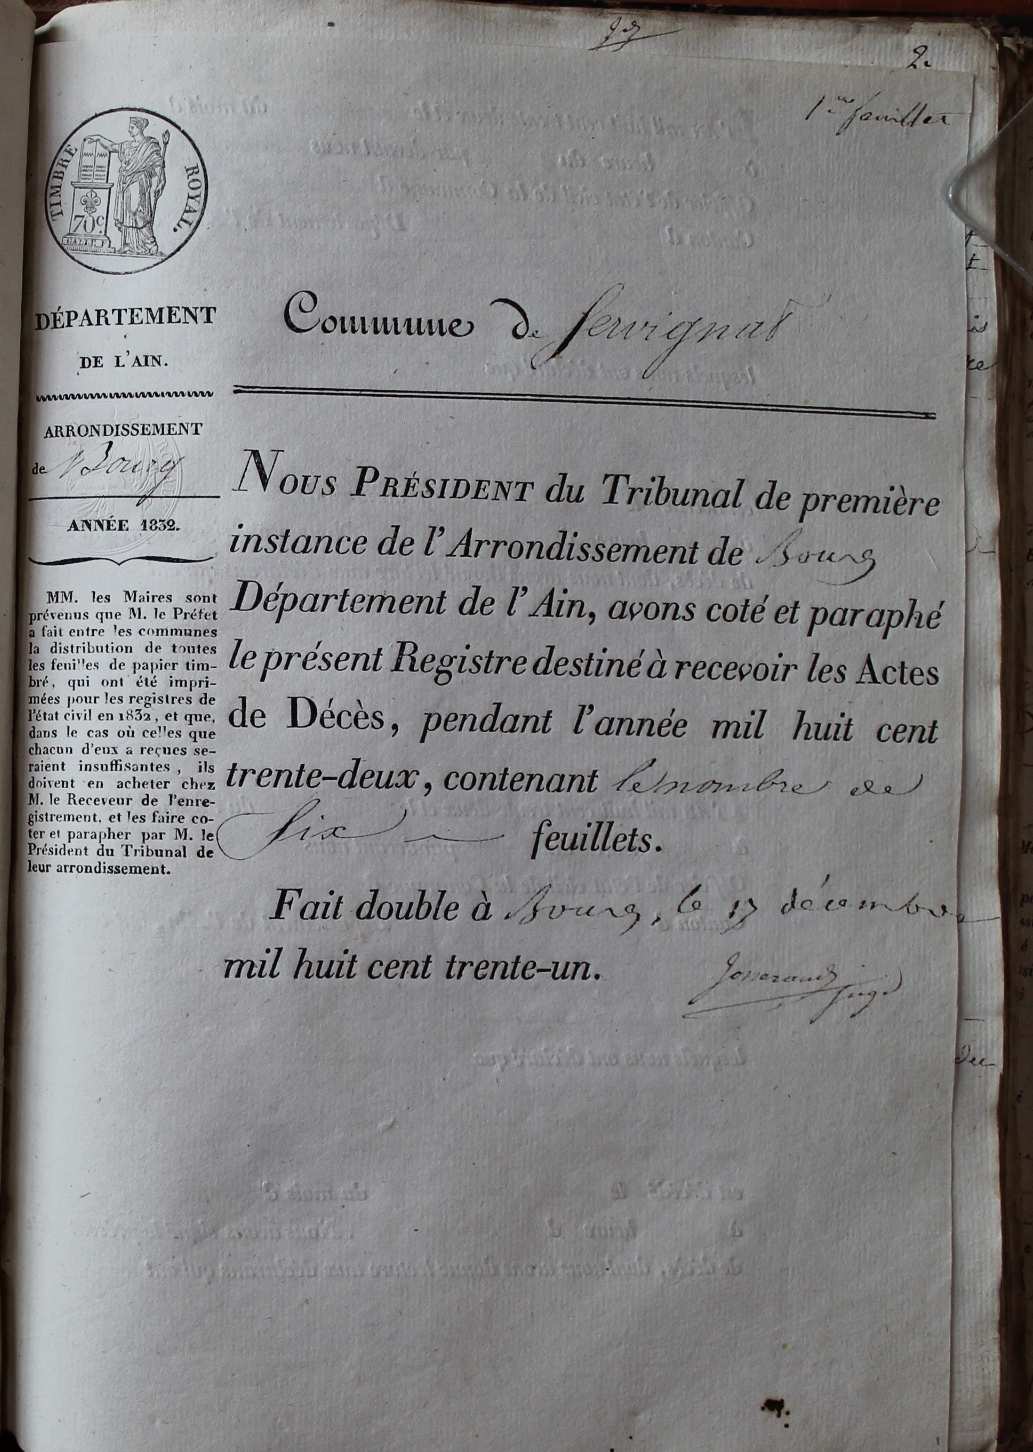 2.
1.er feuillet
TIMBRE ROYAL.
70c.
DÉPARTEMENT
DE L'AIN.
ARRONDISSEMENT
de Bourg
ANNÉE 1832.
MM. les Maires sont
prévenus que M. le Préfet
a fait entre les communes
la distribution de toutes
les feuilles de papier tim-
bré, qui ont été impri-
mées pour les registres de
l'état civil en 1832, et que,
dans le cas où celles que
chacun d'eux a reçues se-
raient insuffisantes, ils
doivent en acheter chez
M. le Receveur de l'enre-
gistrement, et les faire co-
ter et parapher par M. le
Président du Tribunal de
leur arrondissement.
Commune de Servignat
NOUS PRÉSIDENT du Tribunal de première
instance de l'Arrondissement de Bourg
Département de l'Ain, avons coté et paraphé
le présent Registre destiné à recevoir les Actes
de Décès, pendant l'année mil huit cent
trente-deux, contenant le nombre de
Six feuillets.
Fait double à Bourg, le 17 décembre
mil huit cent trente-un.
juge